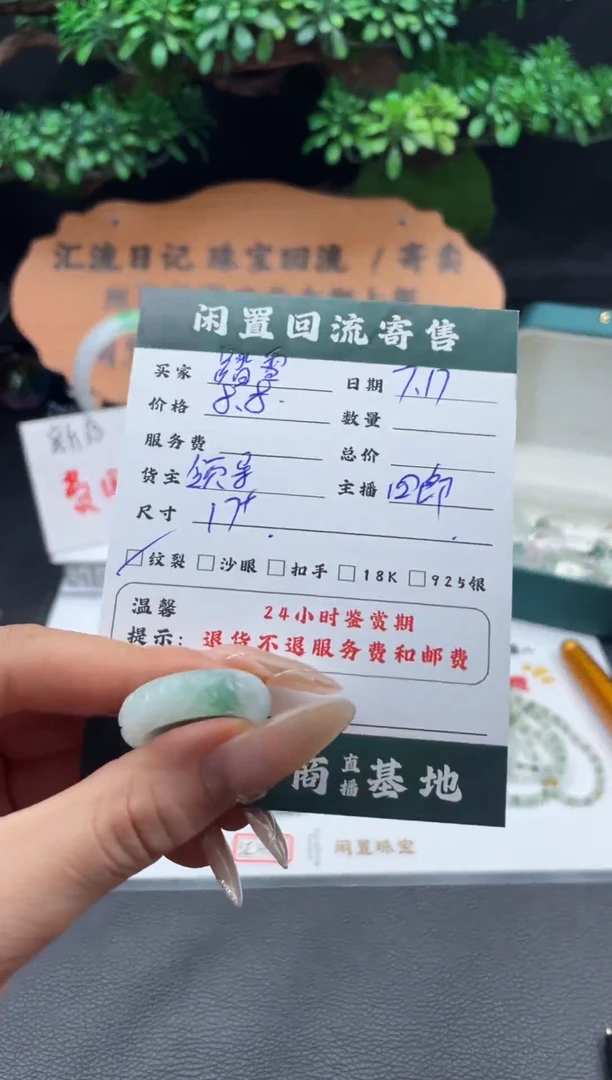 汇流日记 珠宝回流 / 寄卖
闲置回流寄售
买家 踏雪 日期 7.17
价格 8.8- 数量
服务费 总价
货主 领导 主播 四郎
尺寸 17+
纹裂 沙眼 扣手 18K 925银
温馨 24小时鉴赏期
提示: 退货不退服务费和邮费
商 直播 基地
闲置珠宝